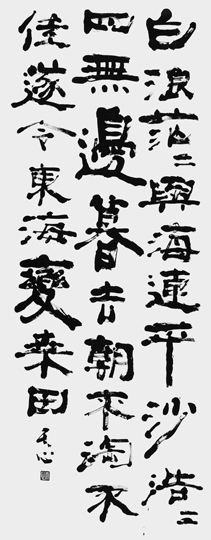 白浪茫二與海連平沙浩二
四無邊暮去朝來淘不
住遂令東海變桒田